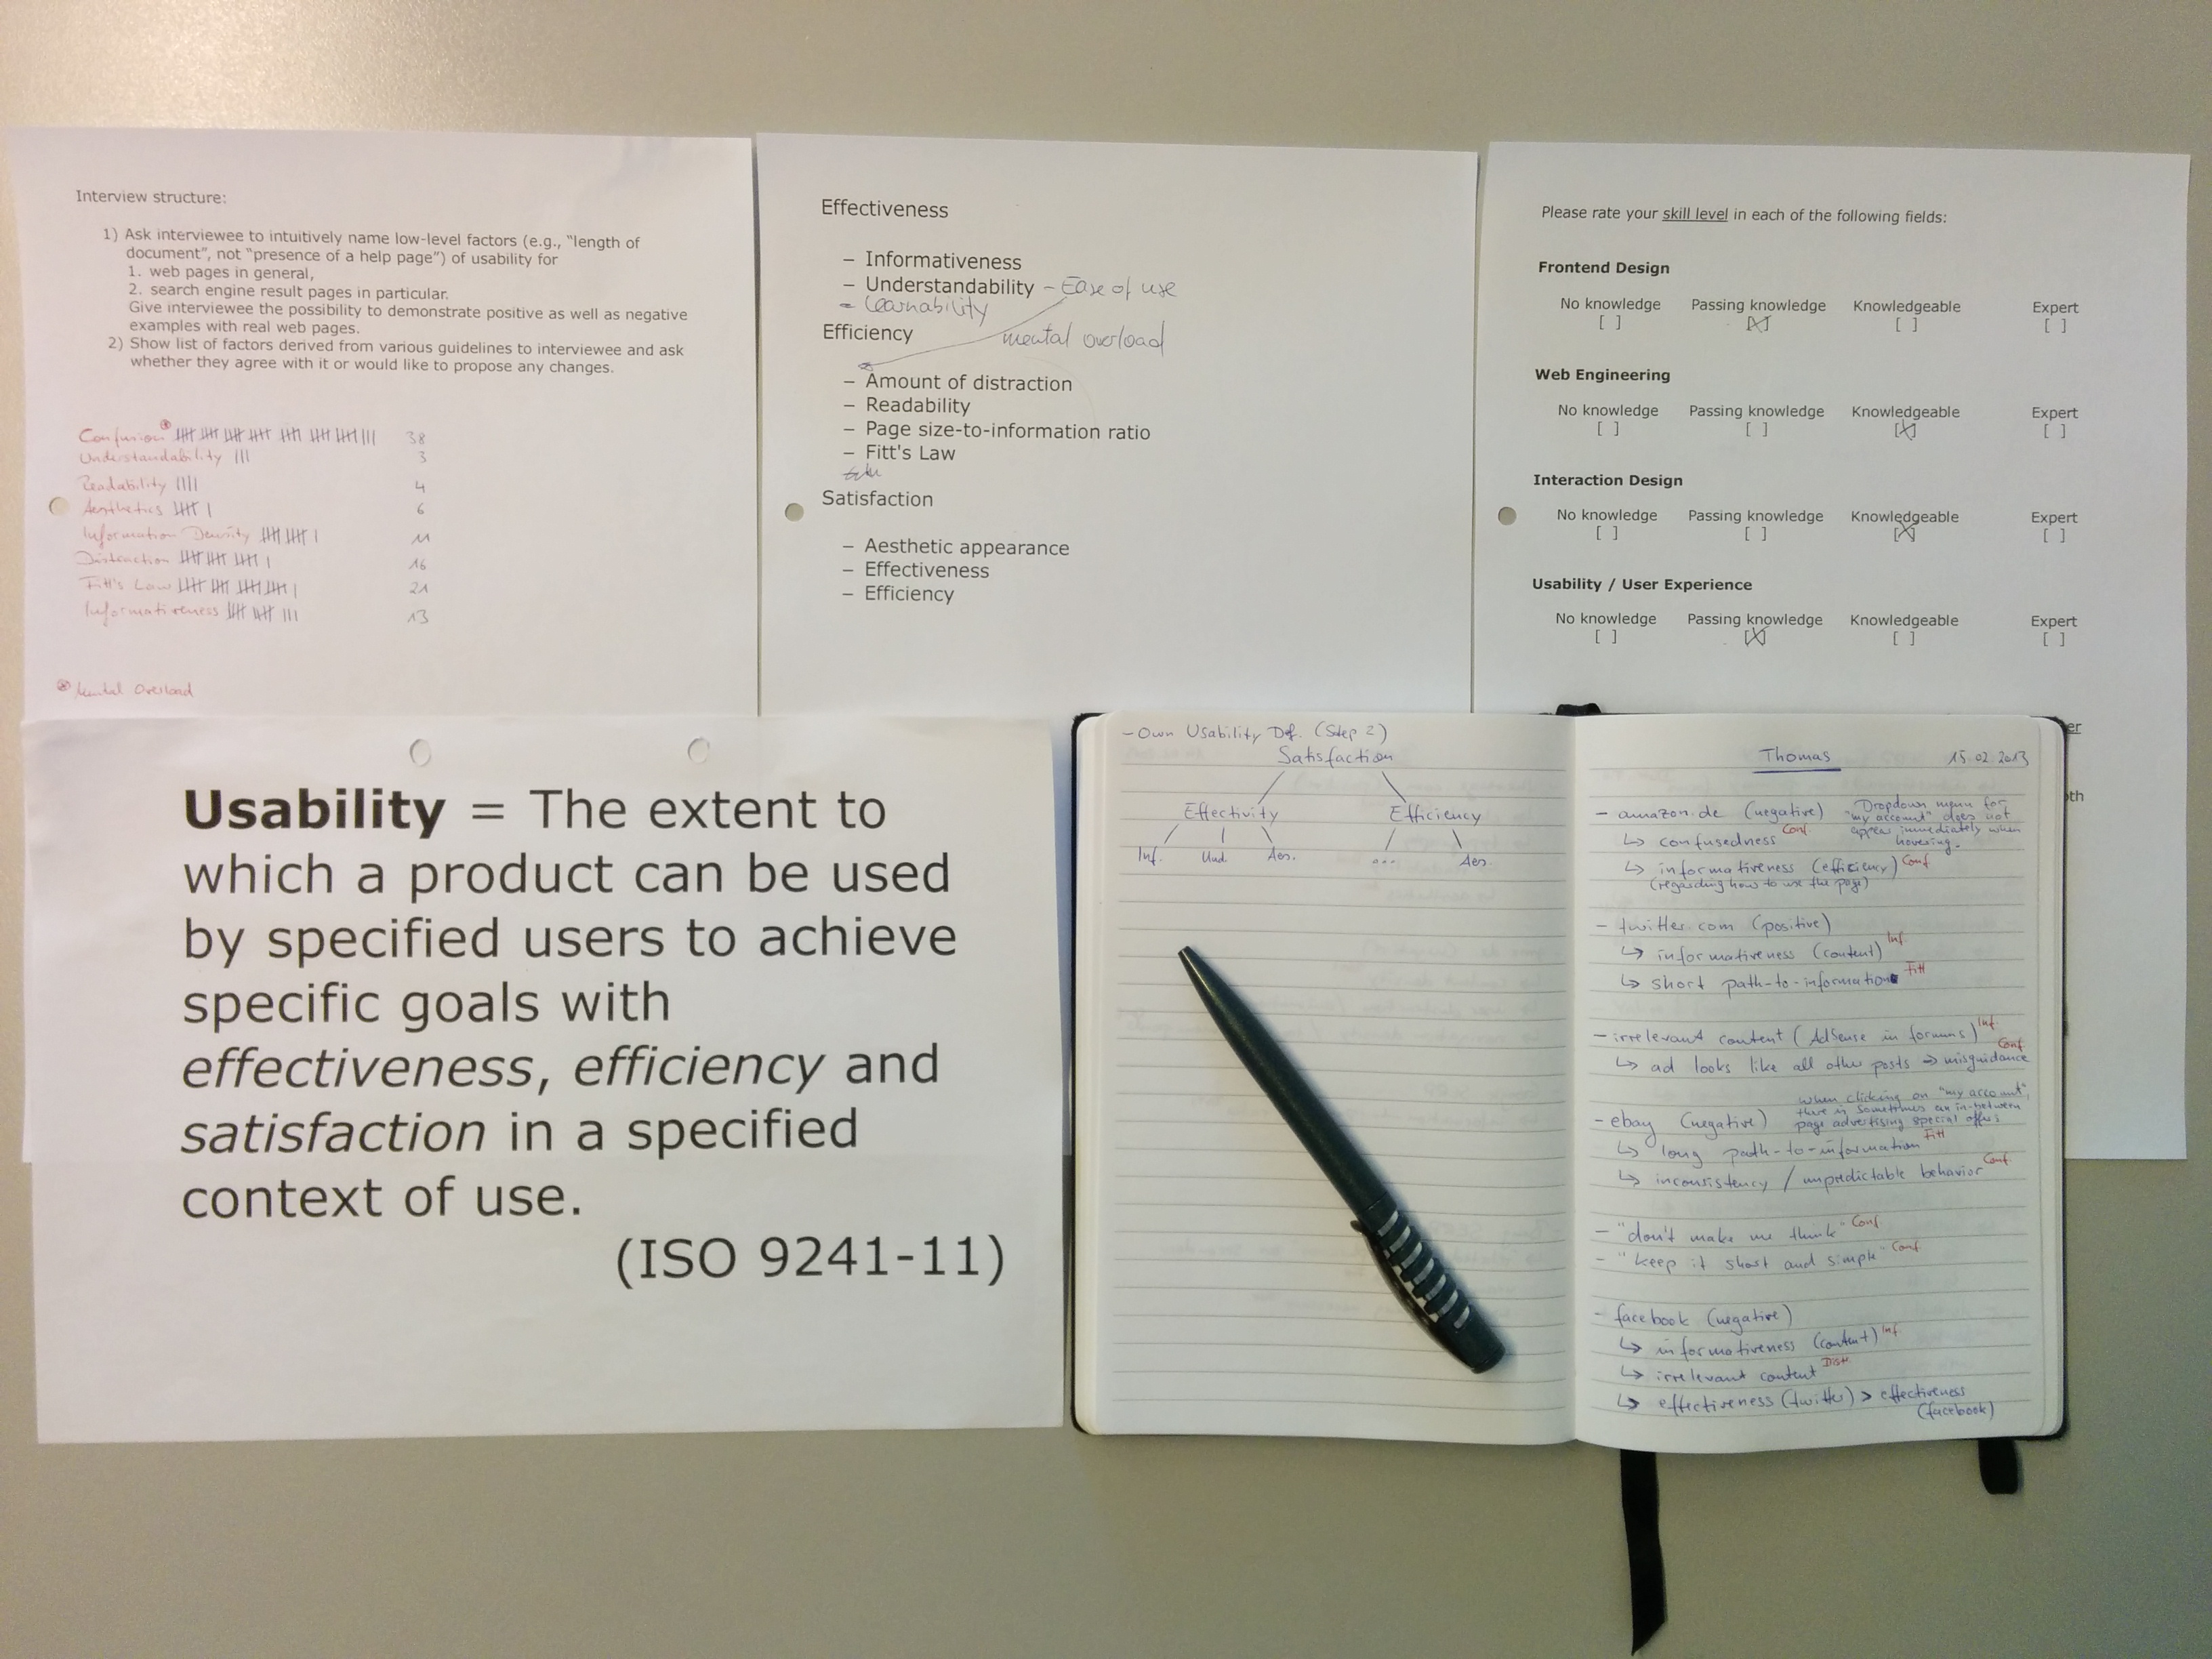 Interview structure:
1) Ask interviewee to intuitively name low-level factors (e.g., "length of
document", not "presence of a help page") of usability for
1. web pages in general,
2. search engine result pages in particular.
Give interviewee the possibility to demonstrate positive as well as negative
examples with real web pages.
2) Show list of factors derived from various guidelines to interviewee and ask
whether they agree with it or would like to propose any changes.
Confusion 38
Understandability 3
Readability 4
Aesthetics 6
Information Density 11
Distraction 16
Fitt's Law 21
Informativeness 13
Mental Overload
Effectiveness
– Informativeness
– Understandability – Ease of use
– Learnability
Efficiency
mental overload
– Amount of distraction
– Readability
– Page size-to-information ratio
– Fitt's Law
Satisfaction
– Aesthetic appearance
– Effectiveness
– Efficiency
Please rate your skill level in each of the following fields:
Frontend Design
No knowledge Passing knowledge Knowledgeable Expert
[ ] [X] [ ] [ ]
Web Engineering
No knowledge Passing knowledge Knowledgeable Expert
[ ] [ ] [X] [ ]
Interaction Design
No knowledge Passing knowledge Knowledgeable Expert
[ ] [ ] [X] [ ]
Usability / User Experience
No knowledge Passing knowledge Knowledgeable Expert
[ ] [X] [ ] [ ]
Usability = The extent to
which a product can be used
by specified users to achieve
specific goals with
effectiveness, efficiency and
satisfaction in a specified
context of use.
(ISO 9241-11)
- Own Usability Def. (Step 2)
Satisfaction
Effectivity Efficiency
Inf. Und. Aes. ... Aes.
Thomas 15.02.2013
- amazon.de (negative) "Dropdown menu for
"my account" does not
appear immediately when
hovering.
↳ confusedness Conf
↳ informativeness (efficiency) Conf
(regarding how to use the page)
- twitter.com (positive)
↳ informativeness (content) Inf.
↳ short path-to-information Fitt
- irrelevant content (AdSense in forums) Inf.
↳ ad looks like all other posts → misguidance Conf.
- ebay (negative) when clicking on "my account",
there is sometimes an in-between
page advertising special offers
↳ long path-to-information Fitt
↳ inconsistency / unpredictable behavior Conf.
- "don't make me think" Conf.
- "keep it short and simple" Conf.
- facebook (negative)
↳ informativeness (content) Inf.
↳ irrelevant content Distr.
↳ effectiveness (twitter) > effectiveness
(facebook)